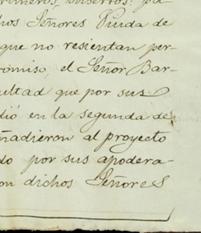 chos Señores Viuda de
que no resientan per-
romiso, el Señor Bar-
ultad que por sus
dió en la segunda de
ñadieron al proyecto
do por sus apodera-
on dichos Señores